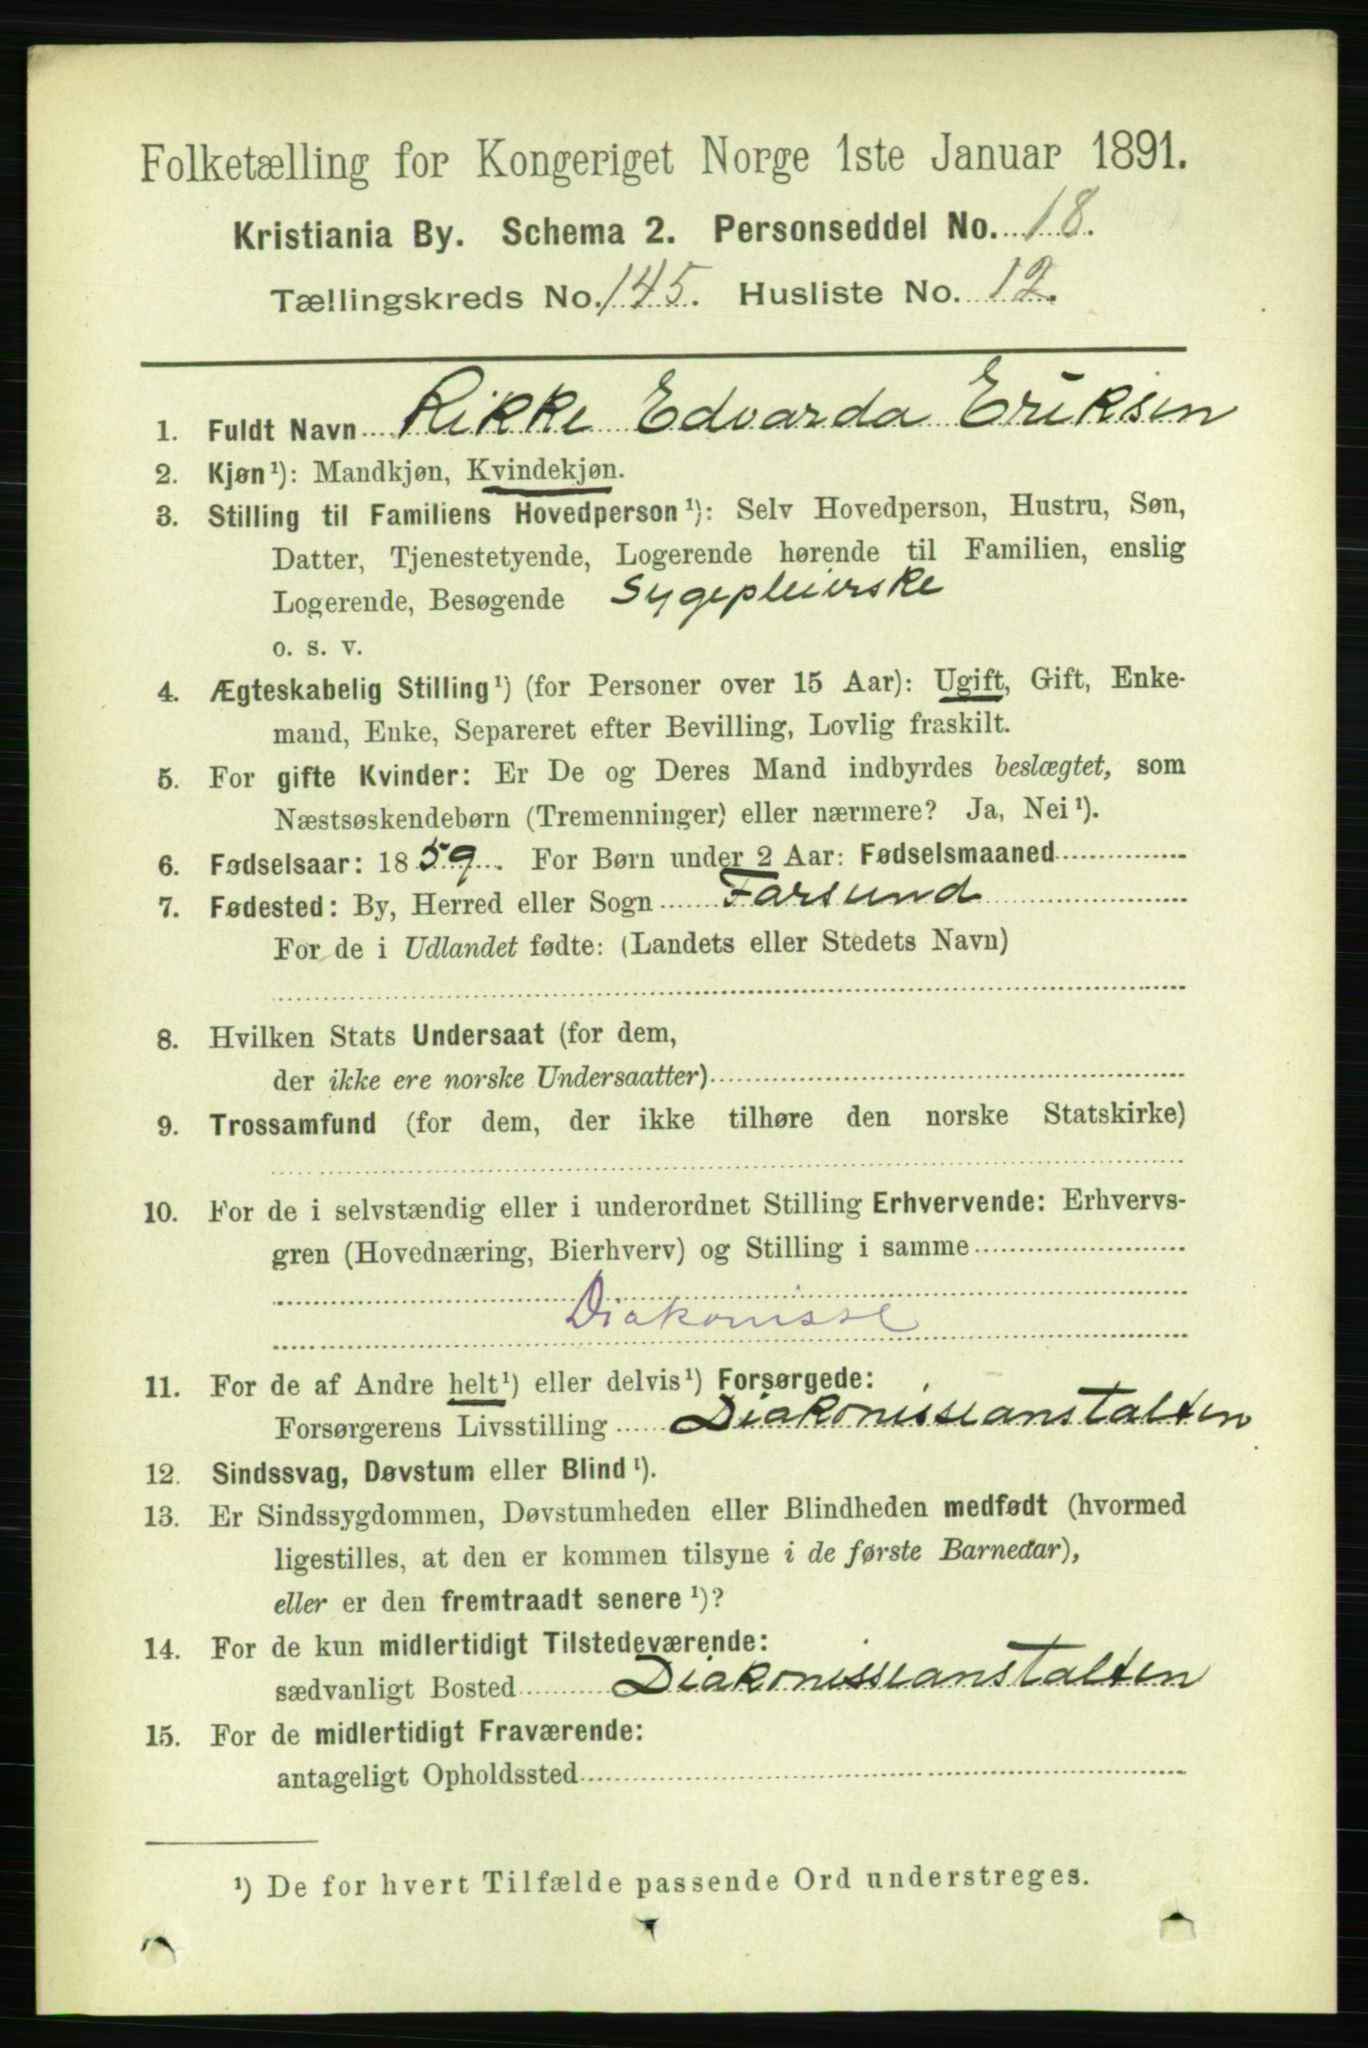 Folketælling for Kongeriget Norge 1ste Januar 1891.
Kristiania By. Schema 2. Personseddel No. 18.
Tællingskreds No. 145. Husliste No. 12.
1. Fuldt Navn Rikke Edvarda Eriksen
2. Kjøn¹): Mandkjøn, Kvindekjøn.
3. Stilling til Familiens Hovedperson¹): Selv Hovedperson, Hustru, Søn,
Datter, Tjenestetyende, Logerende hørende til Familien, enslig
Logerende, Besøgende Sygepleierske
o. s. v.
4. Ægteskabelig Stilling¹) (for Personer over 15 Aar): Ugift, Gift, Enke-
mand, Enke, Separeret efter Bevilling, Lovlig fraskilt.
5. For gifte Kvinder: Er De og Deres Mand indbyrdes beslægtet, som
Næstsøskendebørn (Tremenninger) eller nærmere? Ja, Nei¹).
6. Fødselsaar: 1859. For Børn under 2 Aar: Fødselsmaaned
7. Fødested: By, Herred eller Sogn Farsund
For de i Udlandet fødte: (Landets eller Stedets Navn)
8. Hvilken Stats Undersaat (for dem,
der ikke ere norske Undersaatter)
9. Trossamfund (for dem, der ikke tilhøre den norske Statskirke)
10. For de i selvstændig eller i underordnet Stilling Erhvervende: Erhvervs-
gren (Hovednæring, Bierhverv) og Stilling i samme
Diakonisse
11. For de af Andre helt¹) eller delvis¹) Forsørgede:
Forsørgerens Livsstilling Diakonisseanstalten
12. Sindssvag, Døvstum eller Blind¹).
13. Er Sindssygdommen, Døvstumheden eller Blindheden medfødt (hvormed
ligestilles, at den er kommen tilsyne i de første Barneaar),
eller er den fremtraadt senere¹)?
14. For de kun midlertidigt Tilstedeværende:
sædvanligt Bosted Diakonisseanstalten
15. For de midlertidigt Fraværende:
antageligt Opholdssted
¹) De for hvert Tilfælde passende Ord understreges.